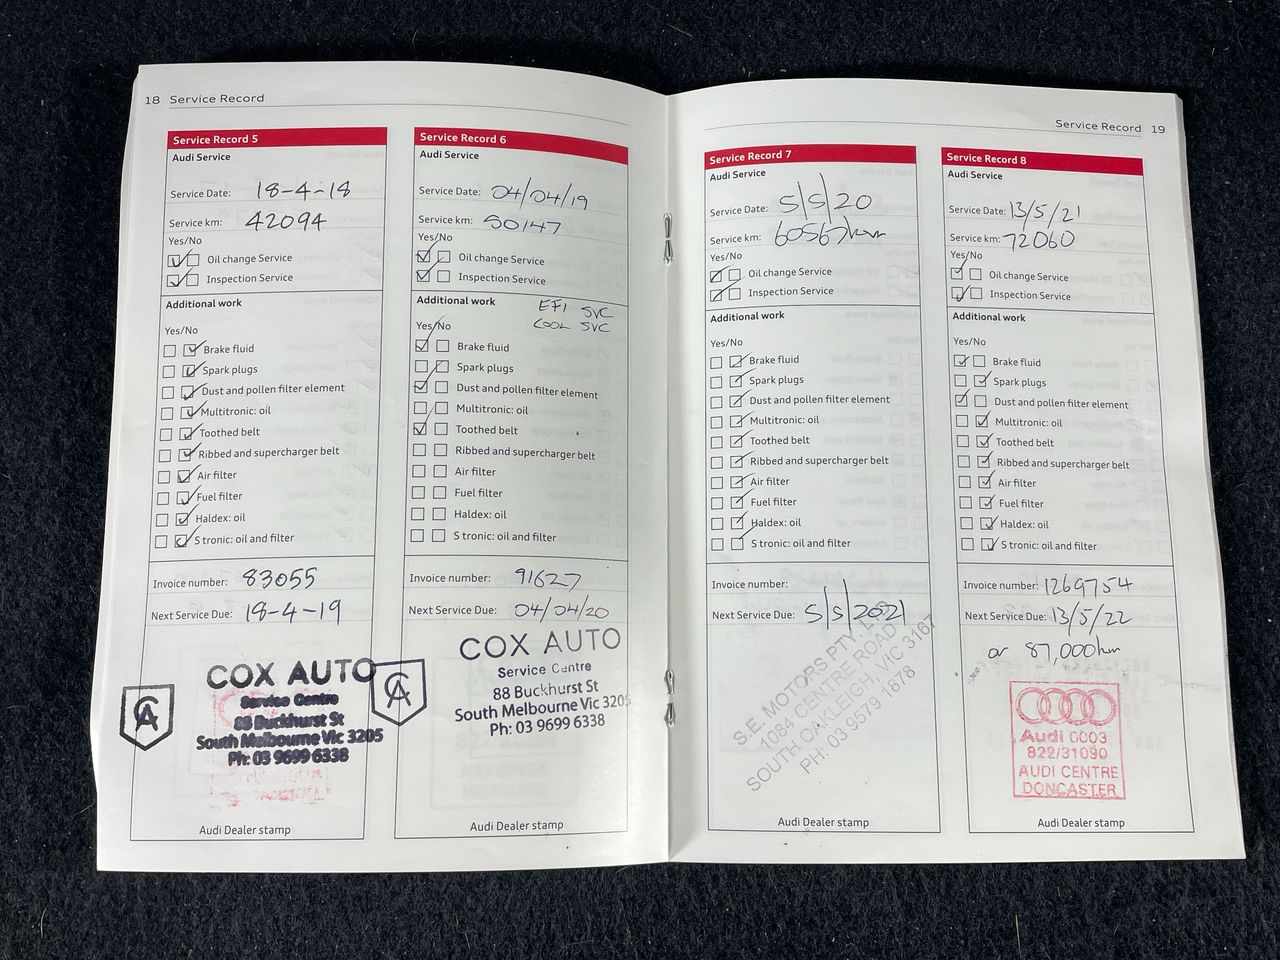 18 Service Record
Service Record 5
Audi Service
Service Date: 18-4-18
Service km: 42094
Yes/No
Oil change Service
Inspection Service
Additional work
Yes/No
Brake fluid
Spark plugs
Dust and pollen filter element
Multitronic: oil
Toothed belt
Ribbed and supercharger belt
Air filter
Fuel filter
Haldex: oil
S tronic: oil and filter
Invoice number: 83055
Next Service Due: 18-4-19
COX AUTO
Service Centre
88 Buckhurst St
South Melbourne Vic 3205
Ph: 03 9699 6338
CA
Audi Dealer stamp
Service Record 6
Audi Service
Service Date: 04/04/19
Service km: 50147
Yes/No
Oil change Service
Inspection Service
Additional work
EFI SVC
COOL SVC
Yes/No
Brake fluid
Spark plugs
Dust and pollen filter element
Multitronic: oil
Toothed belt
Ribbed and supercharger belt
Air filter
Fuel filter
Haldex: oil
S tronic: oil and filter
Invoice number: 91627
Next Service Due: 04/04/20
COX AUTO
Service Centre
88 Buckhurst St
South Melbourne Vic 3205
Ph: 03 9699 6338
CA
Audi Dealer stamp
Service Record 19
Service Record 7
Audi Service
Service Date: 5/5/20
Service km: 60567km
Yes/No
Oil change Service
Inspection Service
Additional work
Yes/No
Brake fluid
Spark plugs
Dust and pollen filter element
Multitronic: oil
Toothed belt
Ribbed and supercharger belt
Air filter
Fuel filter
Haldex: oil
S tronic: oil and filter
Invoice number:
Next Service Due: 5/5/2021
S.E. MOTORS PTY. LTD
1084 CENTRE ROAD
SOUTH OAKLEIGH, VIC 3167
PH: 03 9579 1878
Audi Dealer stamp
Service Record 8
Audi Service
Service Date: 13/5/21
Service km: 72060
Yes/No
Oil change Service
Inspection Service
Additional work
Yes/No
Brake fluid
Spark plugs
Dust and pollen filter element
Multitronic: oil
Toothed belt
Ribbed and supercharger belt
Air filter
Fuel filter
Haldex: oil
S tronic: oil and filter
Invoice number: 1269754
Next Service Due: 13/5/22
or 87,000km
Audi 0003
822/31090
AUDI CENTRE
DONCASTER
Audi Dealer stamp